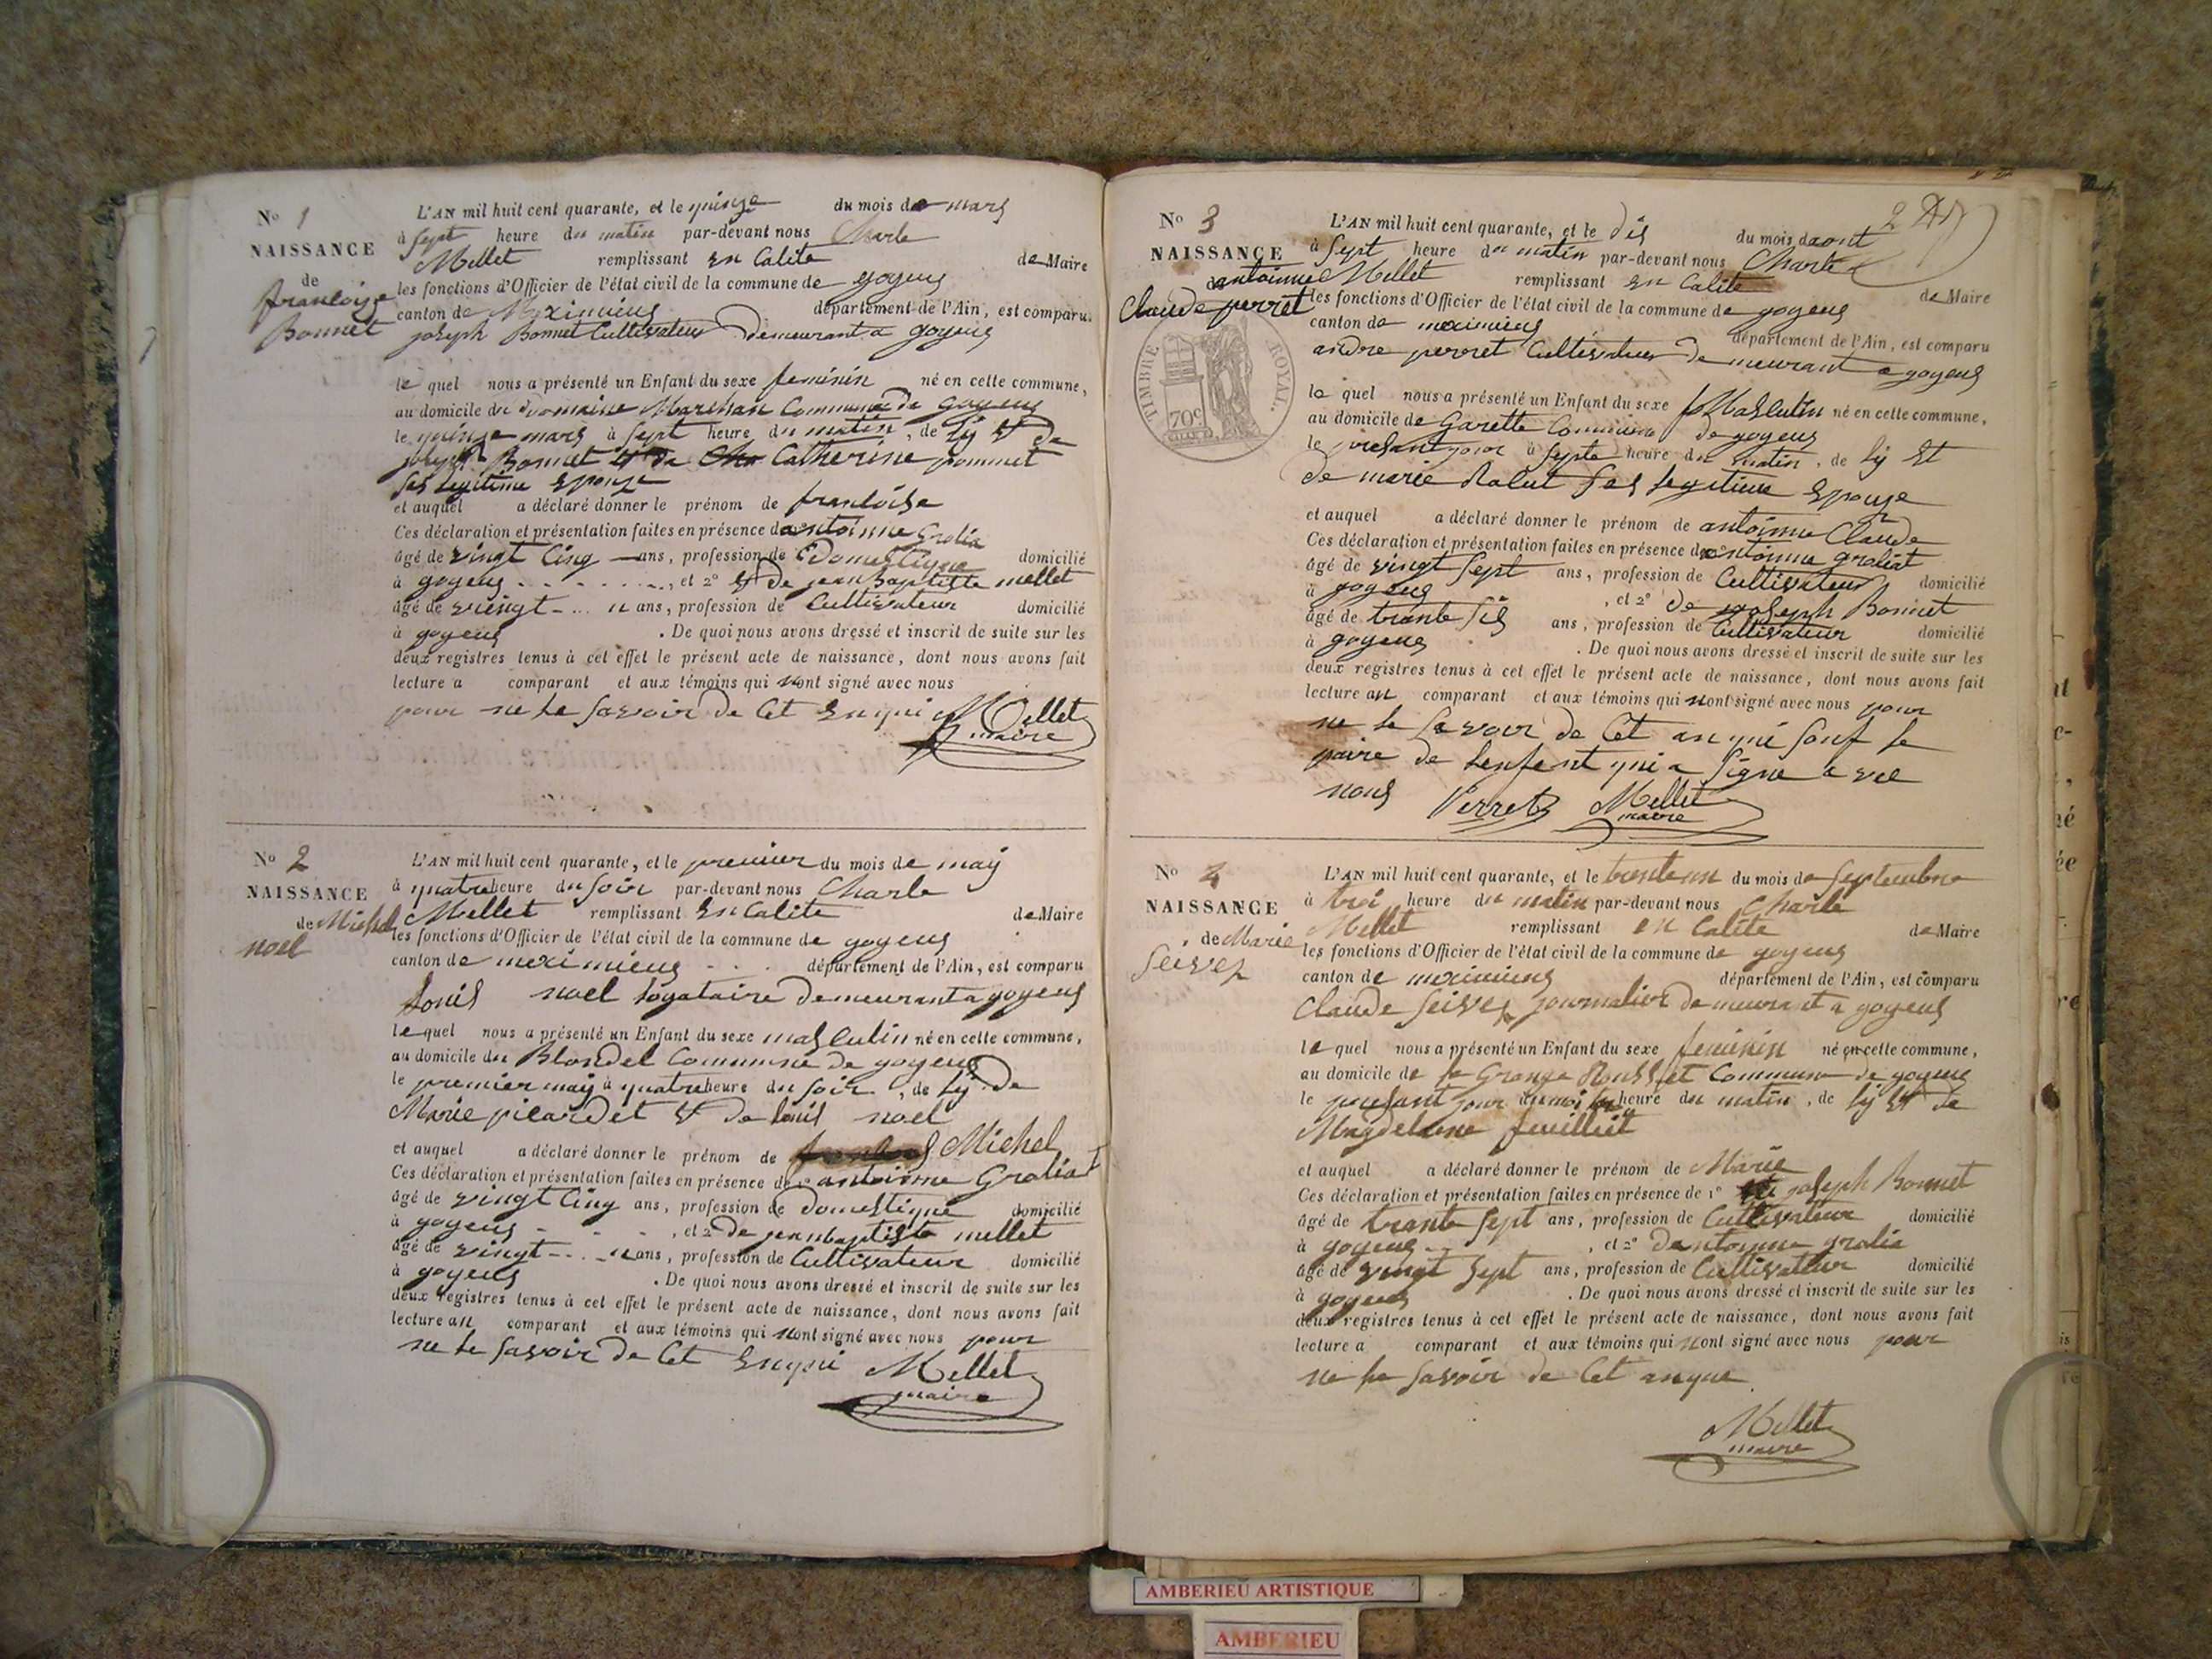 N° 1
NAISSANCE
de
francoise
Bonnet
L'AN mil huit cent quarante, et le quinze du mois de mars
à sept heure du matin par-devant nous Charle
Mellet remplissant en Calite de Maire
les fonctions d'Officier de l'état civil de la commune de goyeus
canton de Meximieus département de l'Ain, est comparu
joseph Bonnet Cultivateur demeurant a goyeus
le quel nous a présenté un Enfant du sexe feminin né en cette commune,
au domicile du domaine Marchan Commune de goyeus
le quinze mars à sept heure du matin, de lj et de
joseph Bonnet et de Catherine pommet
ses legitime epouze
et auquel a déclaré donner le prénom de francoise
Ces déclaration et présentation faites en présence de antoinne Grolia
âgé de vingt Cinq ans, profession de domestique domicilié
à goyeus . . . . . . . , et 2° de jean Baptiste mellet
âgé de vingt - .. n ans, profession de Cultivateur domicilié
à goyeus . De quoi nous avons dressé et inscrit de suite sur les
deux registres tenus à cet effet le présent acte de naissance, dont nous avons fait
lecture a comparant et aux témoins qui nont signé avec nous
pour ne le savoir de Cet enqui Mellet
maire
N° 2
NAISSANCE
de Michel
noel
L'AN mil huit cent quarante, et le premier du mois de may
à quatre heure du soir par-devant nous Charle
Mellet remplissant en Calite de Maire
les fonctions d'Officier de l'état civil de la commune de goyeus
canton de meximieus - . . département de l'Ain, est comparu
louis noel logataire demeurant a goyeus
le quel nous a présenté un Enfant du sexe masculin né en cette commune,
au domicile du Blondel Commune de goyeus
le premier may à quatre heure du soir, de lj de
Marie picardet et de louis noel
et auquel a déclaré donner le prénom de Michel
Ces déclaration et présentation faites en présence de 1° antoinne Groliat
âgé de vingt Cinq ans, profession de domestique domicilié
à goyeus - - - , et 2° de jeanbaptiste mellet
âgé de vingt - .. n ans, profession de Cultivateur domicilié
à goyeus . De quoi nous avons dressé et inscrit de suite sur les
deux registres tenus à cet effet le présent acte de naissance, dont nous avons fait
lecture au comparant et aux témoins qui nont signé avec nous pour
ne le savoir de Cet enqui Mellet
maire
N° 3
NAISSANCE
antoinne
Claude perret
TIMBRE ROYAL.
70c
L'AN mil huit cent quarante, et le dis du mois daout
à sept heure du matin par-devant nous Charle
Mellet remplissant en Calite de Maire
les fonctions d'Officier de l'état civil de la commune de goyeus
canton de meximieus département de l'Ain, est comparu
andre perret Cultivateur demeurant a goyeus
le quel nous a présenté un Enfant du sexe Masculin né en cette commune,
au domicile de Garette Commune de goyeus
le presant jour à septe heure du matin, de lj et
de marie Ralut ses legitime epouze
et auquel a déclaré donner le prénom de antoinne Claude
Ces déclaration et présentation faites en présence de antoinne groliat
âgé de vingt sept ans, profession de Cultivateur domicilié
à goyeus , et 2° de joseph Bonnet
âgé de trante sis ans, profession de Cultivateur domicilié
à goyeus . De quoi nous avons dressé et inscrit de suite sur les
deux registres tenus à cet effet le présent acte de naissance, dont nous avons fait
lecture au comparant et aux témoins qui nont signé avec nous pour
ne le savoir de Cet anqui souf le
paire de lenfent qui a signe a vec
nous Perret Mellet
maire
N° 4
NAISSANCE
de Marie
Seives
L'AN mil huit cent quarante, et le trenteun du mois de septembre
à troi heure du matin par-devant nous Charle
Mellet remplissant en Calite de Maire
les fonctions d'Officier de l'état civil de la commune de goyeus
canton de meximieus département de l'Ain, est comparu
Claude Seives journalier demeurant a goyeus
le quel nous a présenté un Enfant du sexe feminin né en cette commune,
au domicile de la Grange Rousset Commune de goyeus
le presant jour heure du matin, de lj et de
Magdelaine feuilliet
et auquel a déclaré donner le prénom de Marie
Ces déclaration et présentation faites en présence de 1° joseph Bonnet
âgé de trante sept ans, profession de Cultivateur domicilié
à goyeus , et 2° dantoinne grolia
âgé de vingt sept ans, profession de Cultivateur domicilié
à goyeus . De quoi nous avons dressé et inscrit de suite sur les
deux registres tenus à cet effet le présent acte de naissance, dont nous avons fait
lecture a comparant et aux témoins qui nont signé avec nous pour
ne le savoir de Cet anque
Mellet
maire
AMBERIEU ARTISTIQUE
AMBERIEU